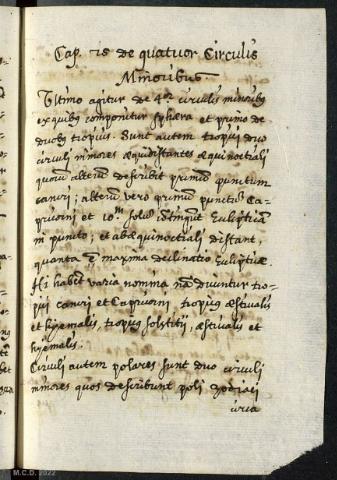 Cap. 15 de quatuor Circulis
Minoribus.
Ultimo agitur de 4or circulis minoribq
ex quibq componitur sphæra et primo de
duobq tropicis. Sunt autem tropici duo
circuli minores æquidistantes æquinoctiali
quorum alterum describit primum punctum
cancri; alterum vero primum punctum Ca-
pricorni et solum contingunt Eclipticam
in puncto; et ab æquinoctiali distant,
quanta e maxima declinatio Eclipticæ.
Hi habent varia nomina nam dicuntur tro-
pici cancri et Capricorni, tropicus æstivalis
et hyemalis, tropicus solstitii, æstivalis et
hyemalis.
Circuli autem polares sunt duo circuli
minores quos describunt poli zodiaci
circa
M.C.D. 2022